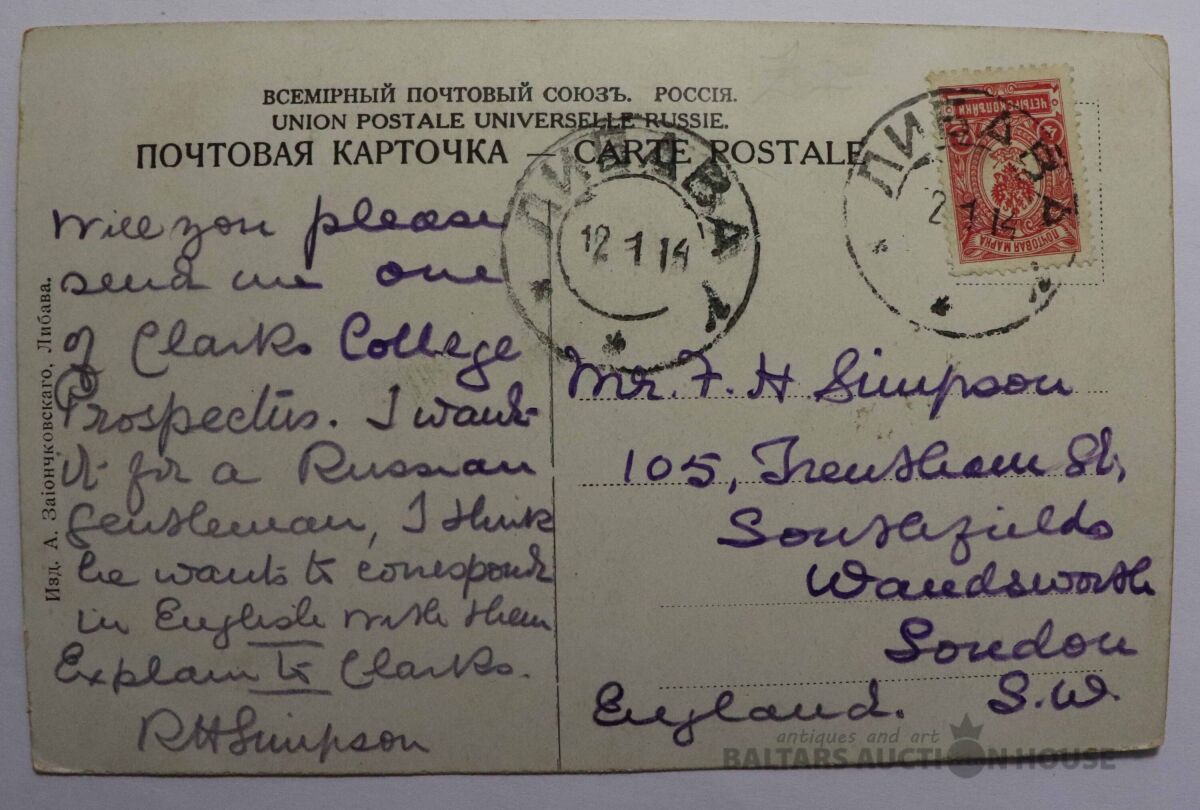 ВСЕМІРНЫЙ ПОЧТОВЫЙ СОЮЗЪ. РОССІЯ.
UNION POSTALE UNIVERSELLE RUSSIE.
ПОЧТОВАЯ КАРТОЧКА — CARTE POSTALE
Will you please
send me one
of Clarks College
Prospectus. I want
it for a Russian
Gentleman, I think
he wants to correspond
in English with them
Explain to Clarks.
RHSimpson
Изд. А. Заіончковскаго, Либава.
ЛИБАВА
12 1 14
1
ЛИБАВА
2 1 14
1
ЧЕТЫРЕ КОПѢЙКИ
4 4
ПОЧТОВАЯ МАРКА
Mr. F. H Simpson
105, Trentham St,
Southfields
Wandsworth
London
S.W.
England.
antiques and art
BALTARS AUCTION HOUSE